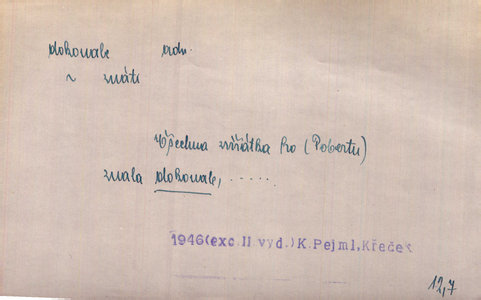 dokonale adv.
~ znáti
Všechna zvířátka ho (Robertu)
znala dokonale, .....
1946(exc.II.vyd.)K.Pejml,Křeček
12,7